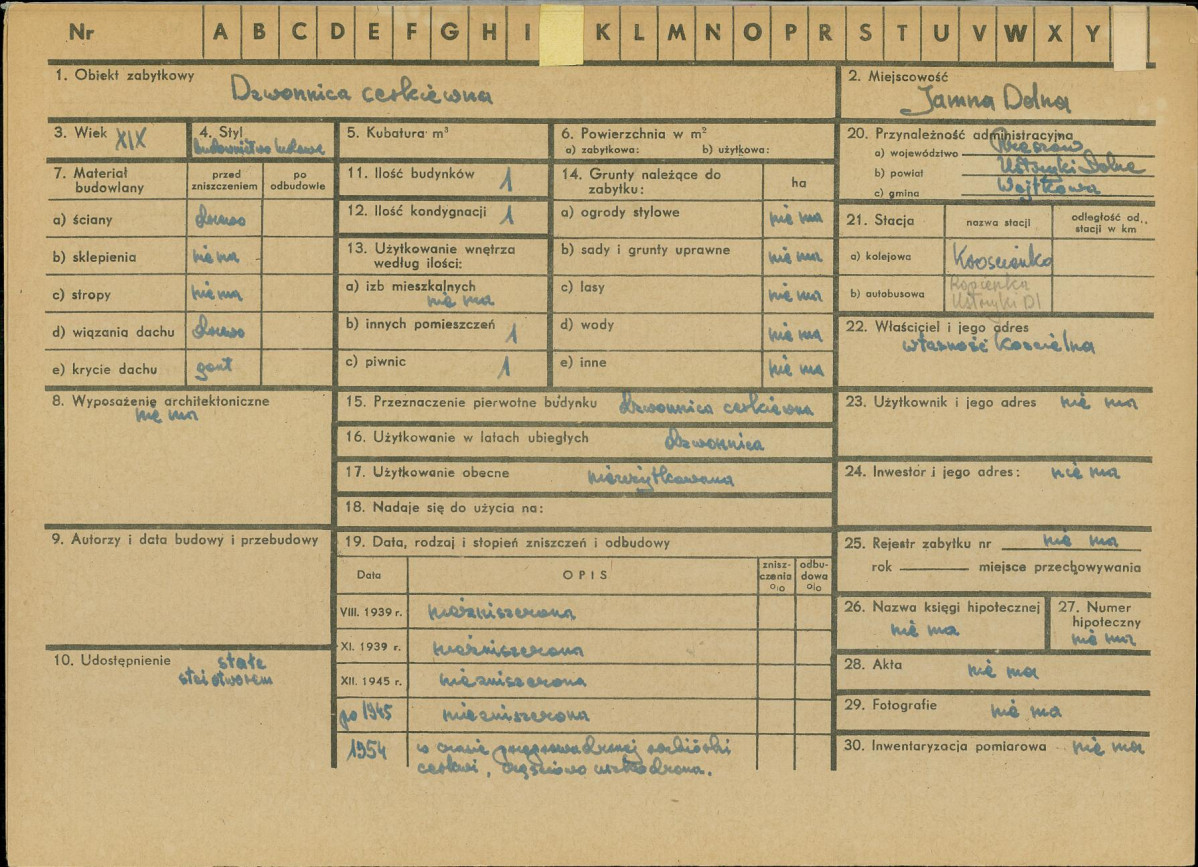 Nr A B C D E F G H I K L M N O P R S T U V W X Y
1. Obiekt zabytkowy
Dzwonnica cerkiewna
2. Miejscowość
Jamna Dolna
3. Wiek XIX
4. Styl
budownictwo ludowe
5. Kubatura m³
6. Powierzchnia w m²
a) zabytkowa: b) użytkowa:
20. Przynależność administracyjna
a) województwo Rzeszów
b) powiat Ustrzyki Dolne
c) gmina Wojtkowa
7. Materiał budowlany
przed zniszczeniem
po odbudowie
a) ściany drewno
b) sklepienia nie ma
c) stropy nie ma
d) wiązania dachu drewno
e) krycie dachu gont
11. Ilość budynków 1
12. Ilość kondygnacji 1
13. Użytkowanie wnętrza
według ilości:
a) izb mieszkalnych
nie ma
b) innych pomieszczeń 1
c) piwnic 1
14. Grunty należące do
zabytku:
ha
a) ogrody stylowe nie ma
b) sady i grunty uprawne nie ma
c) lasy nie ma
d) wody nie ma
e) inne nie ma
21. Stacja
nazwa stacji
odległość od
stacji w km
a) kolejowa Krościenko
b) autobusowa Ropienka
Ustrzyki Dl
22. Właściciel i jego adres
własność kościelna
8. Wyposażenie architektoniczne
nie ma
15. Przeznaczenie pierwotne budynku dzwonnica cerkiewna
16. Użytkowanie w latach ubiegłych dzwonnica
17. Użytkowanie obecne nieużytkowana
18. Nadaje się do użycia na:
23. Użytkownik i jego adres nie ma
24. Inwestor i jego adres: nie ma
9. Autorzy i data budowy i przebudowy
19. Data, rodzaj i stopień zniszczeń i odbudowy
Data
OPIS
znisz-
czenia
%
odbu-
dowa
%
VIII. 1939 r. niezniszczona
XI. 1939 r. niezniszczona
XII. 1945 r. niezniszczona
po 1945 niezniszczona
1954 w czasie przeprowadzonej rozbiórki
cerkwi, częściowo uszkodzona.
10. Udostępnienie stałe
stoi otworem
25. Rejestr zabytku nr nie ma
rok miejsce przechowywania
26. Nazwa księgi hipotecznej
nie ma
27. Numer
hipoteczny
nie ma
28. Akta nie ma
29. Fotografie nie ma
30. Inwentaryzacja pomiarowa nie ma